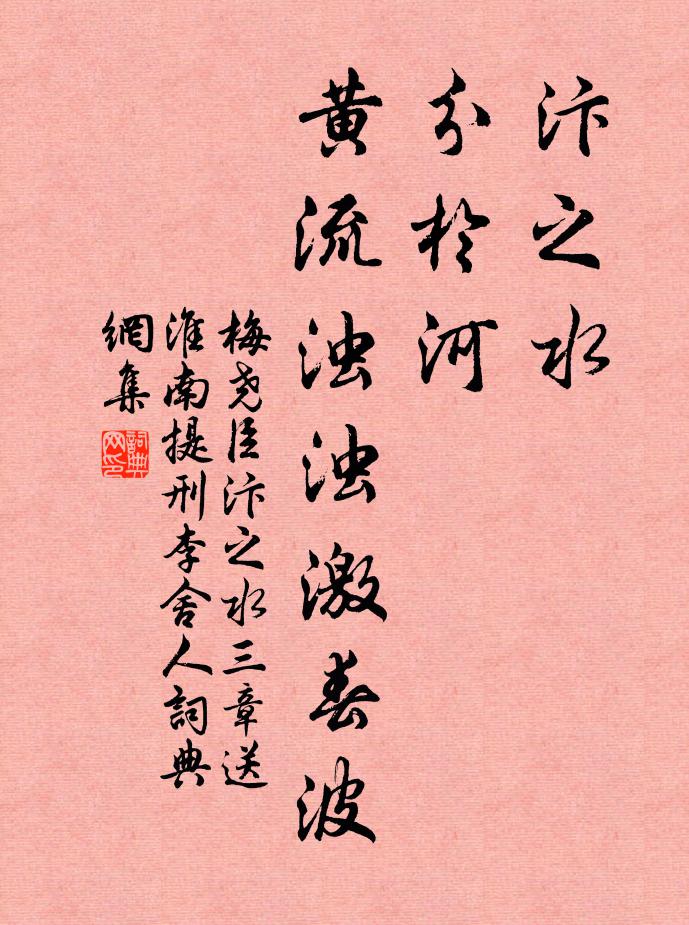 汴之水
分於河
黄流浊浊激春波
梅尧臣汴之水三章送
淮南提刑李舍人詞典
網集
詞典
网印